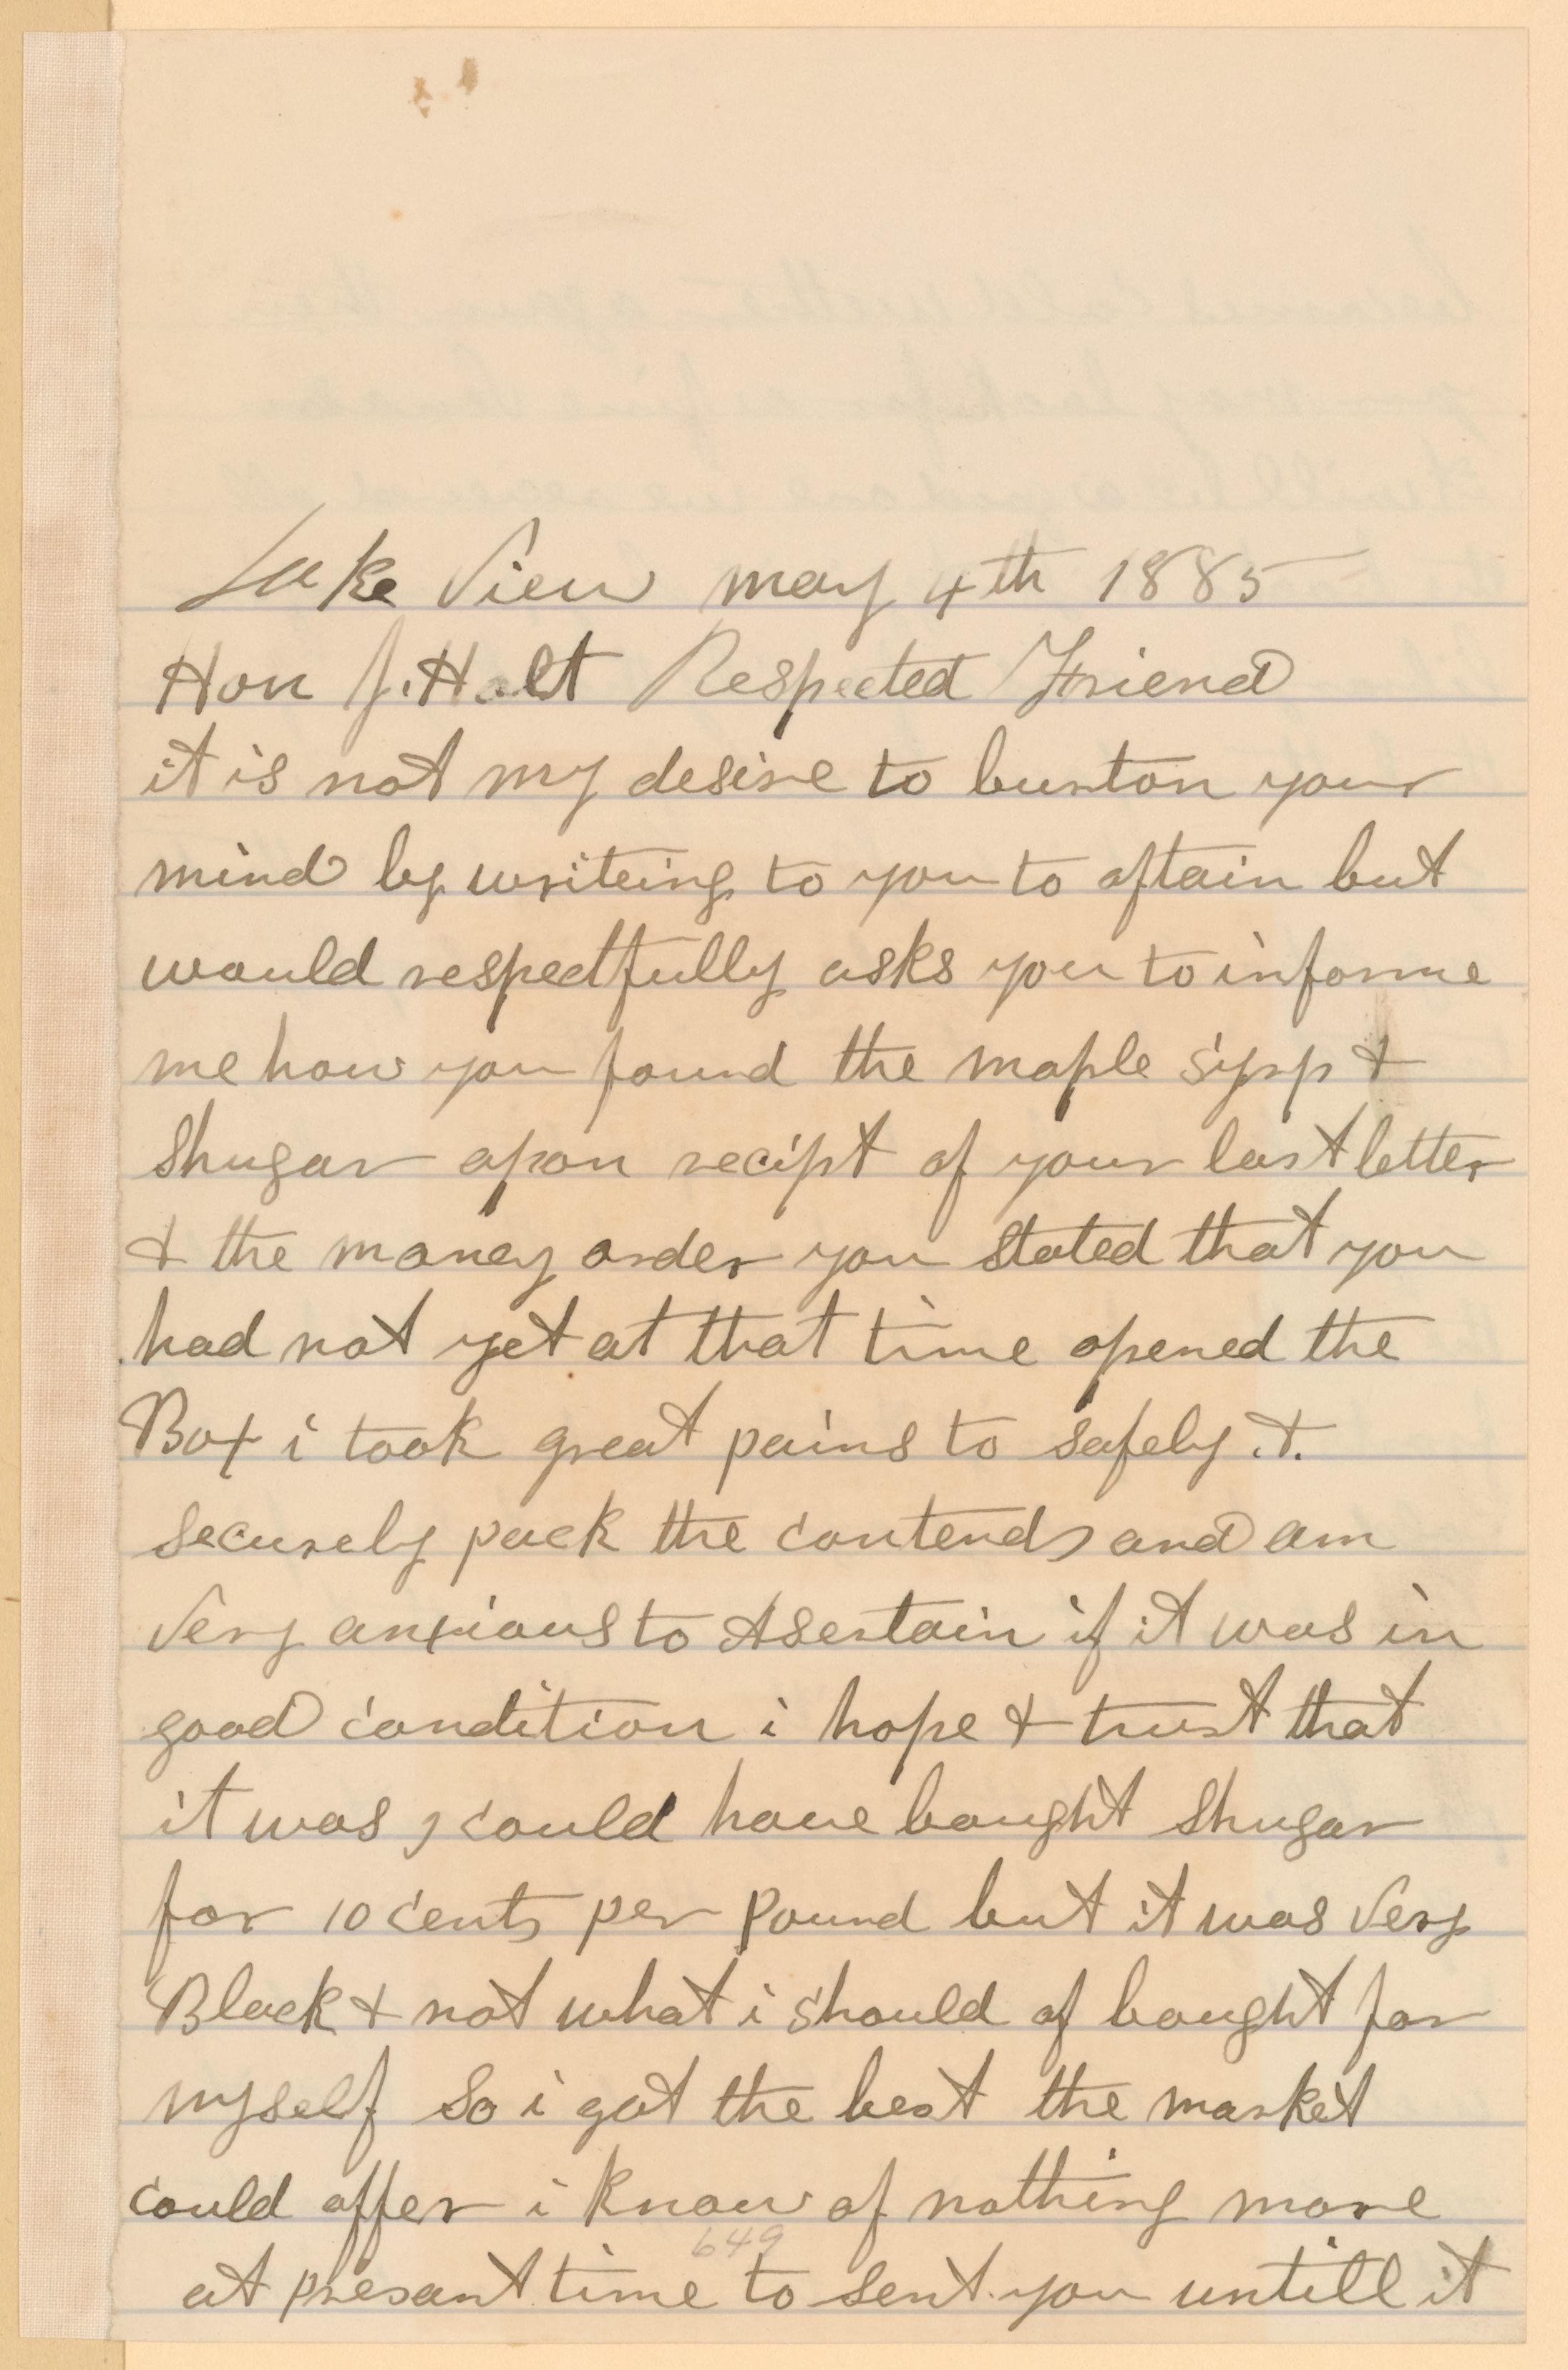 Lake View may 4th 1885
Hon J. Holt Respected Friend
it is not my desire to burton your
mind by writeing to you to oftain but
would respectfully asks you to informe
me how you found the maple syrp &
Shugar apon recipt of your last letter
& the money order you stated that you
had not yet at that time opened the
Box i took great pains to safely &.
securely pack the contends and am
very anxious to Asertain if it was in
good condition i hope & trust that
it was , could have bought Shugar
for 10 cents per Pound but it was very
Black & not what i should of bought for
myself so i got the best the market
could offer i know of nothing more
649
at presant time to sent you untill it